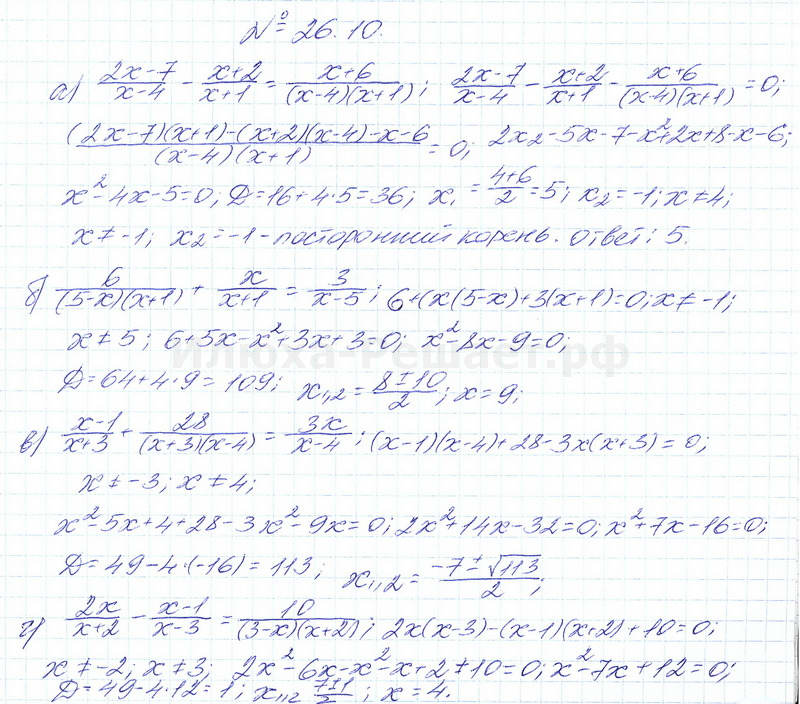 № 26.10.
а) (2x-7)/(x-4) - (x+2)/(x+1) = (x+6)/((x-4)(x+1)); (2x-7)/(x-4) - (x+2)/(x+1) - (x+6)/((x-4)(x+1)) = 0;
((2x-7)(x+1)-(x+2)(x-4)-x-6)/((x-4)(x+1)) = 0; 2x2-5x-7-x²+2x+8-x-6;
x²-4x-5=0; Д=16+4·5=36; x₁ = (4+6)/2 = 5; x₂=-1; x≠4;
x≠-1; x₂=-1 - посторонний корень. Ответ: 5.
б) 6/((5-x)(x+1)) + x/(x+1) = 3/(x-5); 6+(x(5-x)+3(x+1)=0; x≠-1;
x≠5; 6+5x-x²+3x+3=0; x²-8x-9=0;
илюха-Решает.рф
Д=64+4·9=109; x₁,₂ = (8±10)/2; x=9;
в) (x-1)/(x+3) + 28/((x+3)(x-4)) = 3x/(x-4); (x-1)(x-4)+28-3x(x+3)=0;
x≠-3; x≠4;
x²-5x+4+28-3x²-9x=0; 2x²+14x-32=0; x²+7x-16=0;
Д=49-4·(-16)=113; x₁,₂ = (-7±√113)/2;
г) 2x/(x+2) - (x-1)/(x-3) = 10/((3-x)(x+2)); 2x(x-3)-(x-1)(x+2)+10=0;
x≠-2; x≠3; 2x²-6x-x²-x+2+10=0; x²-7x+12=0;
Д=49-4·12=1; x₁,₂ (7±1)/2; x=4.